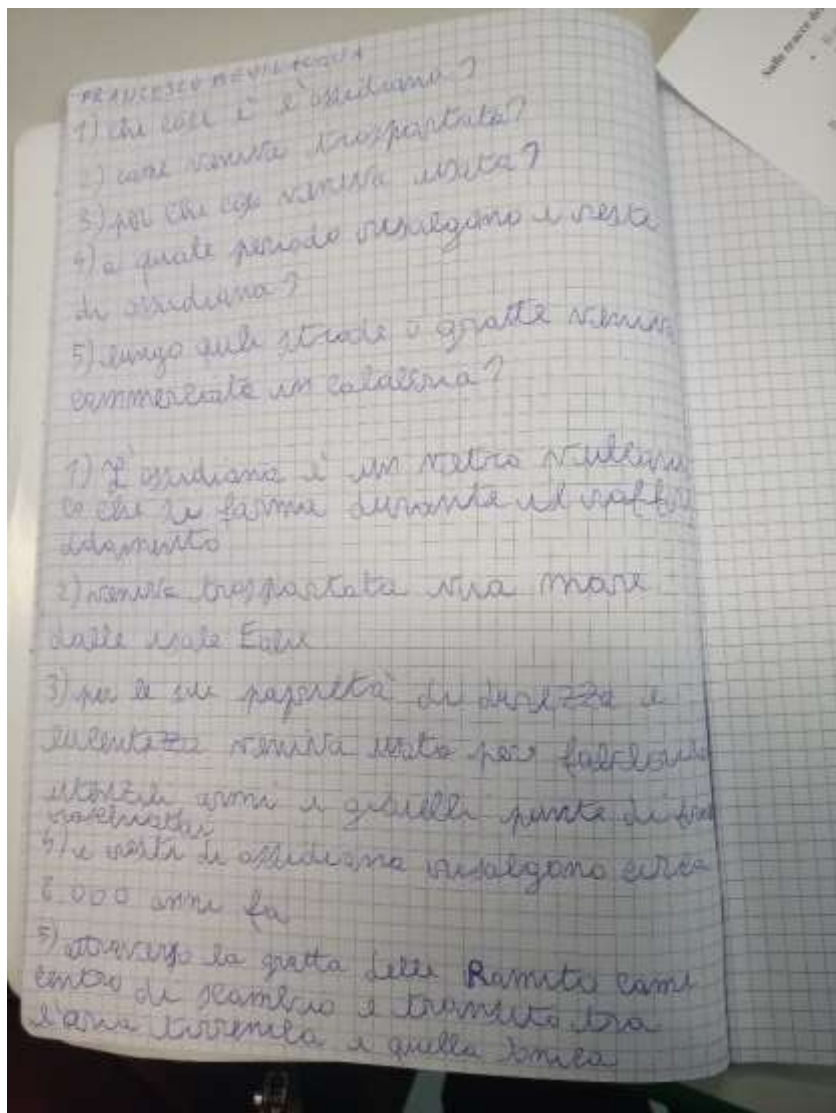 FRANCESCO BEVILACQUA
1) che cose è l'ossidiana?
2) come veniva trasportata?
3) per che cosa veniva usata?
4) a quale periodo risalgono i resti
di ossidiana?
5) lungo quli strade o grotte veniva
commerciate in calabria?
1) L'ossidiana è un vetro vulcani
co che si forma durante il raffre
ddamento
2) veniva trasportata via mare
dalle isole Eolie
3) per le sue di durezza e
lucentezza veniva usata per
utensili armi e gioielli punte di
4) i resti di ossidiana risalgono circa
6.000 anni fa
5) attraverso la grotta delle come
centro di scambio e transito tra
l'aria tirrenica e quella Ionica
Sulle tracce